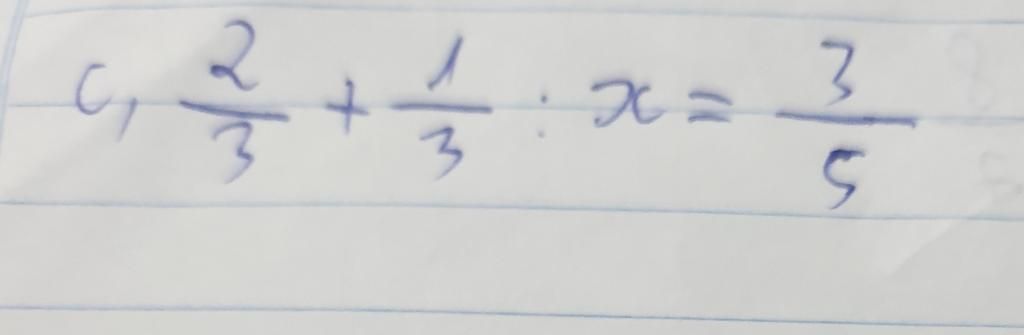 c, 2/3 + 1/3 : x = 3/5